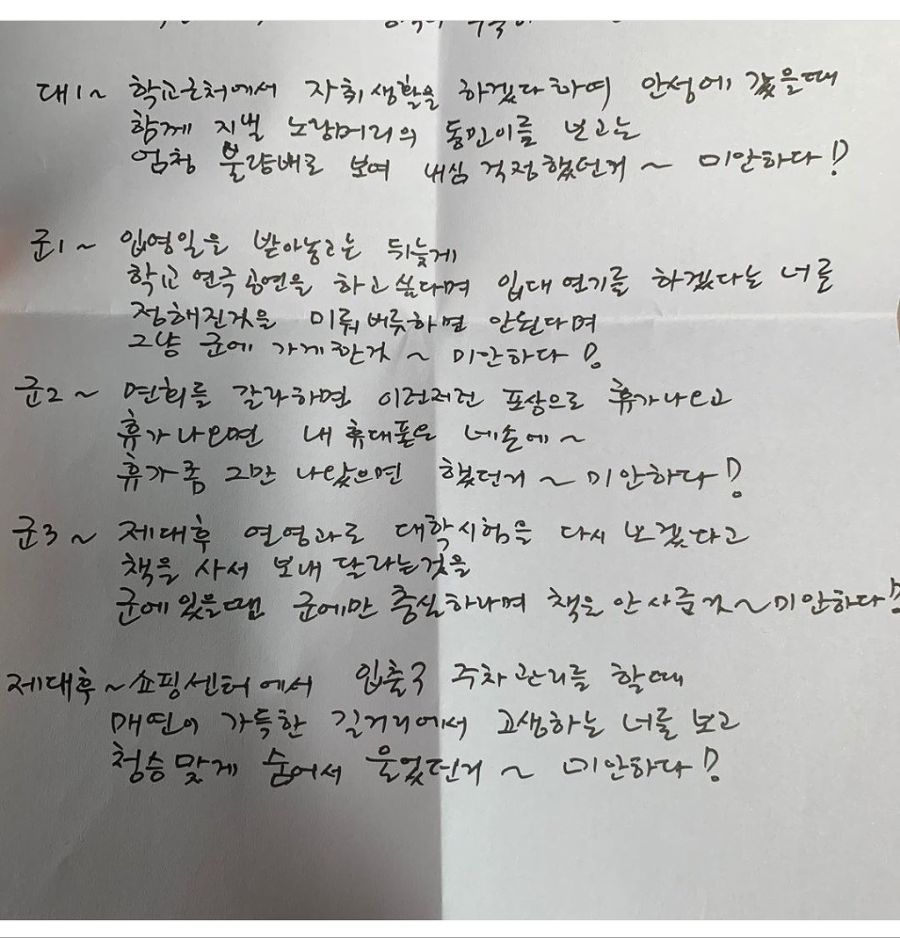 대1~ 학교근처에서 자취생활을 하겠다하여 안성에 갔을때
함께 지낼 노랑머리의 동민이를 보고는
엄청 불량배로 보여 내심 걱정했던거~ 미안하다!
군1~ 입영일을 받아놓고는 뒤늦게
학교 연극공연을 하고싶다며 입대연기를 하겠다는 너를
정해진것을 미뤄버릇하면 안된다며
그냥 군에 가게한것~ 미안하다!
군2~ 면회를 갈라하면 이런저런 포상으로 휴가나오고
휴가나오면 내 휴대폰은 네손에~
휴가좀 그만 나왔으면 했던거~ 미안하다!
군3~ 제대후 연영과로 대학시험을 다시 보겠다고
책을 사서 보내달라는것을
군에있을땐 군에만 충실하라며 책을 안사준거~미안하다!
제대후~쇼핑센터에서 입출구 주차관리를 할때
매연이 가득한 길거리에서 고생하는 너를 보고
청승맞게 숨어서 울었던거~ 미안하다!